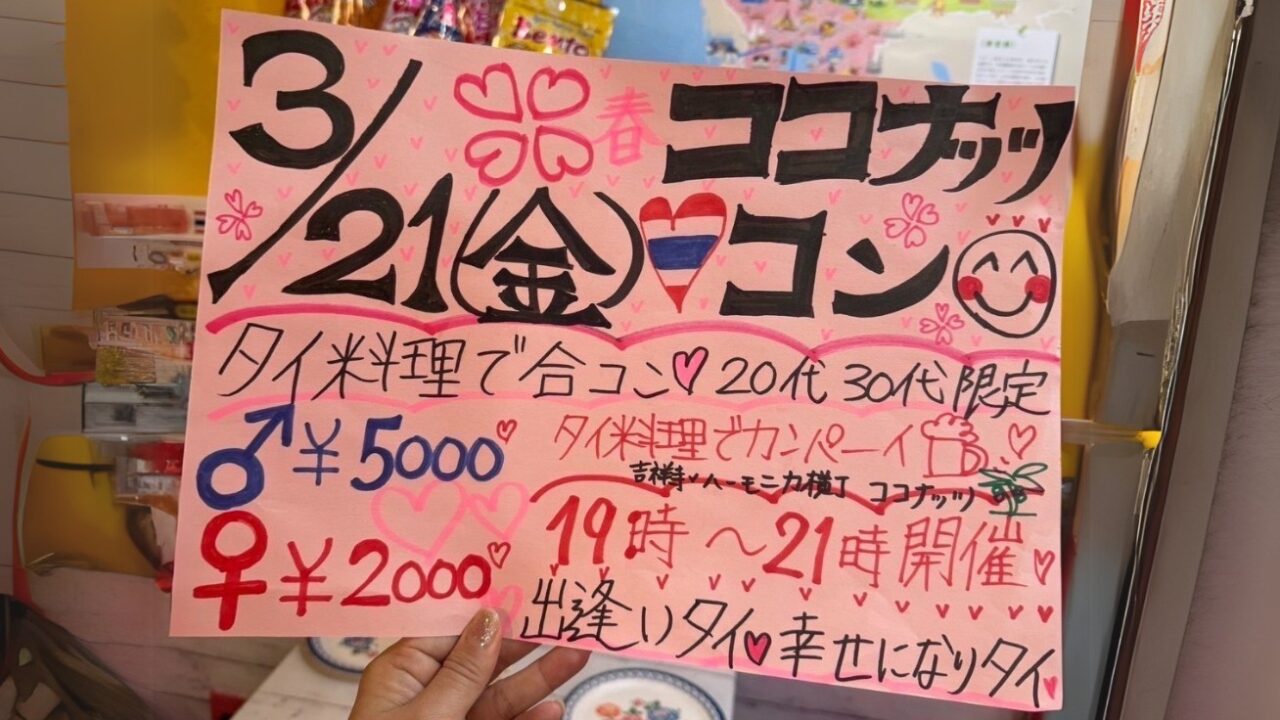 3/21(金)
春 ココナッツ
コン
タイ料理で合コン 20代 30代 限定
♂¥5000
タイ料理でカンパーイ
吉祥寺 ハーモニカ横丁 ココナッツ
19時～21時開催
♀¥2000
出逢いタイ♥幸せになりタイ